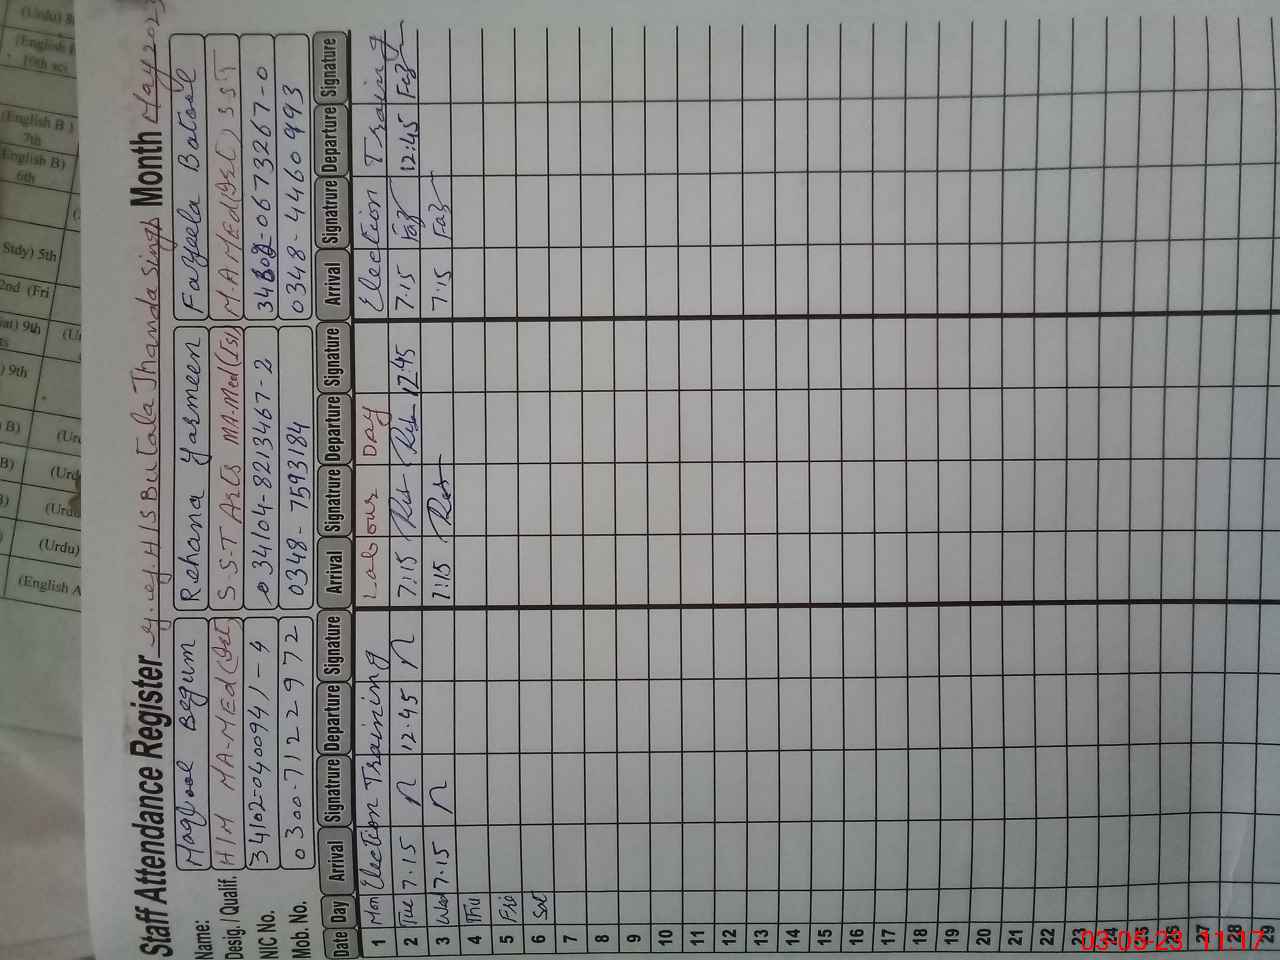 Staff Attendance Register G.G.H/S Butala Jhanda Singh Month May 2023
Name: Maqbool Begum Rehana Yasmeen Fazeela Batool
Desig. / Qualif. H/M MA-MEd S.S.T Arts MA.Med (Isl) M.A MEd SST
NIC No. 34102-0400941-4 34104-8213467-2 0673267-0
Mob. No. 0300-7122972 0348-7593184 0348-4460993
Date Day Arrival Signatrure Departure Signature Arrival Signatrure Departure Signature Arrival Signatrure Departure Signature
1 Mon Election Training Labour Day Election Training
2 Tue 7.15 12.45 7:15 12:45 7.15 Faz 12:45 Faz
3 Wed 7.15 7:15 7.15 Faz
4 Thu
5 Fri
6 Sat
7
8
9
10
11
12
13
14
15
16
17
18
19
20
21
22
23
24
25
26
27
28
29
03-05-23 11:17
(English B )
7th
English B)
6th
Stdy) 5th
2nd (Fri
9th
) 9th
B)
(Urdu)
(English A